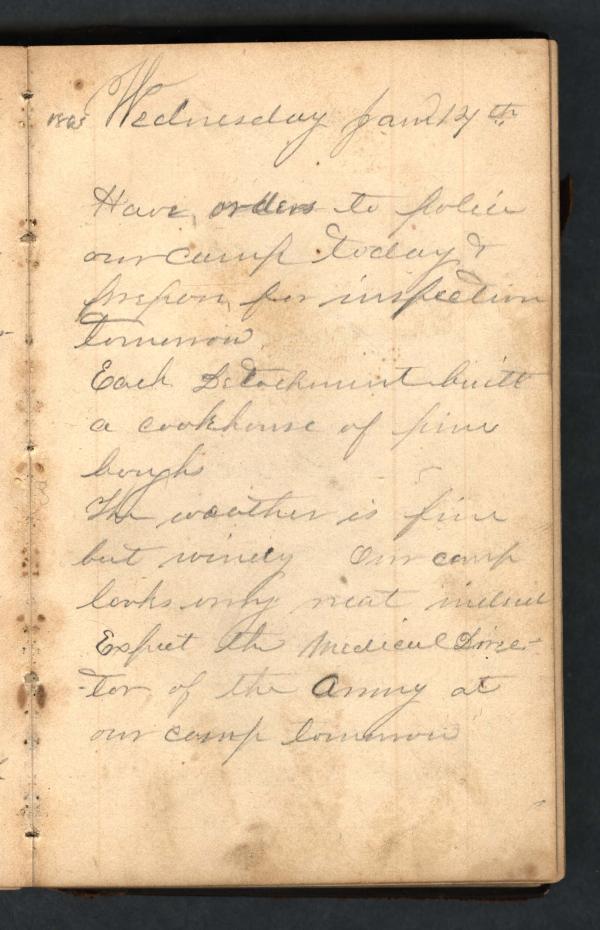 Wednesday Jan 14th
Have orders to police
our camp today &
prepare for inspection
tomorrow.
Each Detachment built
a cookhouse of pine
boughs
The weather is fine
but windy Our camp
looks very neat indeed
Expect the Medical Direc-
-tor of the Army at
our camp tomorrow